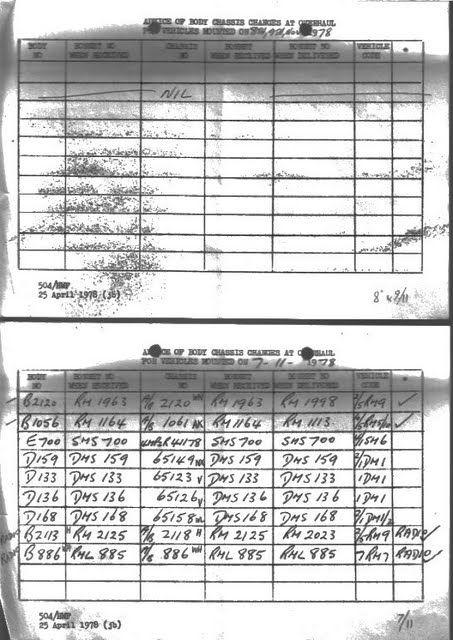 ADVICE OF BODY CHASSIS CHANGES AT OVERHAUL
FOR VEHICLES MOUNTED ON 8th, 9th, Nov 1978
BODY NO BONNET NO WHEN RECEIVED CHASSIS NO BONNET NO WHEN RECEIVED BONNET NO WHEN DELIVERED VEHICLE CODE
NIL
504/HMP
25 April 1978 (jb)
8 & 9/11
ADVICE OF BODY CHASSIS CHANGES AT OVERHAUL
FOR VEHICLES MOUNTED ON 7-11-1978
BODY NO BONNET NO WHEN RECEIVED CHASSIS NO BONNET NO WHEN RECEIVED BONNET NO WHEN DELIVERED VEHICLE CODE
B2120 RM 1963 2120 WH RM 1963 RM 1998 2/5RM9 ✓
B1056 RM 1164 1061 AK RM 1164 RM 1113 ✓
E700 SMS 700 SMS 700 SMS 700 4/1SM6
D159 DMS 159 65149 DMS 159 DMS 159 2/1DM1
D133 DMS 133 65123 V DMS 133 DMS 133 1DM1
D136 DMS 136 65126 V DMS 136 DMS 136 1DM1
D168 DMS 168 65158 DMS 168 DMS 168
B2113 H RM 2125 2118 H RM 2125 RM 2023 2/5RM9 RADIO
B886 RML 885 886 WH RML 885 RML 885 7RM7 RADIO
504/HMP
25 April 1978 (jb)
7/11